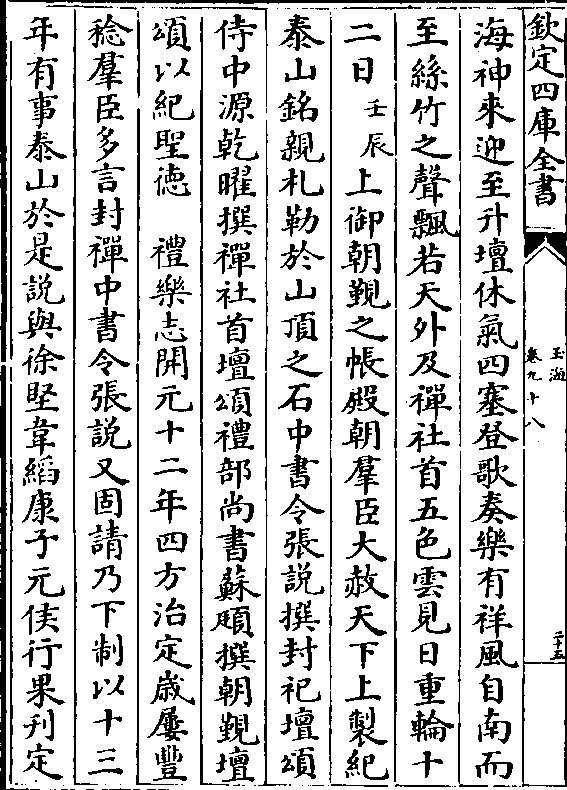 欽定四庫全書
玉海
卷九十八
二十五
海神來迎至升壇休氣四塞登歌奏樂有祥風自南而
至絲竹之聲飄若天外及禪社首五色雲見日重輪十
二日壬辰上御朝覲之帳殿朝羣臣大赦天下上製紀
泰山銘親札勒於山頂之石中書令張説撰封祀壇頌
侍中源乾曜撰禪社首壇頌禮部尚書蘇頲撰朝覲壇
頌以紀聖徳 禮樂志開元十二年四方治定歲屢豐
稔羣臣多言封禪中書令張説又固請乃下制以十三
年有事泰山於是説與徐堅韋縚康子元侯行果刋定